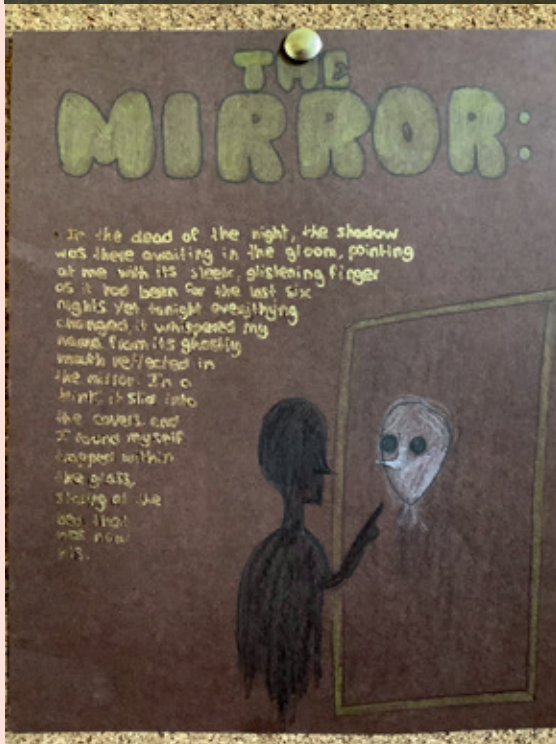 THE
MIRROR:
In the dead of the night, the shadow
was there awaiting in the gloom, pointing
at me with its sleek, glistening finger
as it had been for the last six
nights yet tonight everything
changed, it whispered my
name from its ghostly
mouth reflected in
the mirror. In a
blink, it slid into
the covers and
I found myself
trapped within
the glass,
staring at the
boy that
was now
his.